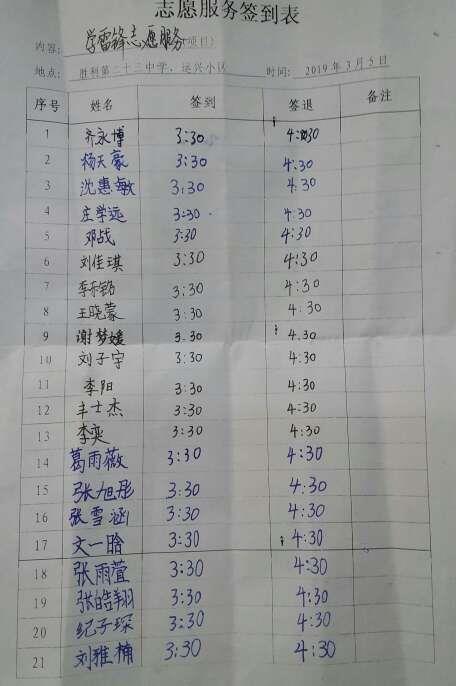 志愿服务签到表
内容: 学雷锋志愿服务(项目)
地点: 胜利第二十三中学、运兴小区 时间: 2019年3月5日
序号 姓名 签到 签退 备注
1 齐永博 3:30 4:30
2 杨天豪 3:30 4:30
3 沈惠敏 3:30 4:30
4 庄学远 3:30 4:30
5 邓战 3:30 4:30
6 刘佳琪 3:30 4:30
7 李和铭 3:30 4:30
8 王晓蒙 3:30 4:30
9 谢梦媛 3.30 4.30
10 刘子宇 3:30 4:30
11 李阳 3:30 4:30
12 丰士杰 3:30 4:30
13 李奕 3:30 4:30
14 葛雨薇 3:30 4:30
15 张旭彤 3:30 4:30
16 张雪涵 3:30 4:30
17 文一晗 3:30 4:30
18 张雨萱 3:30 4:30
19 张皓翔 3:30 4:30
20 纪子琛 3:30 4:30
21 刘雅楠 3:30 4:30